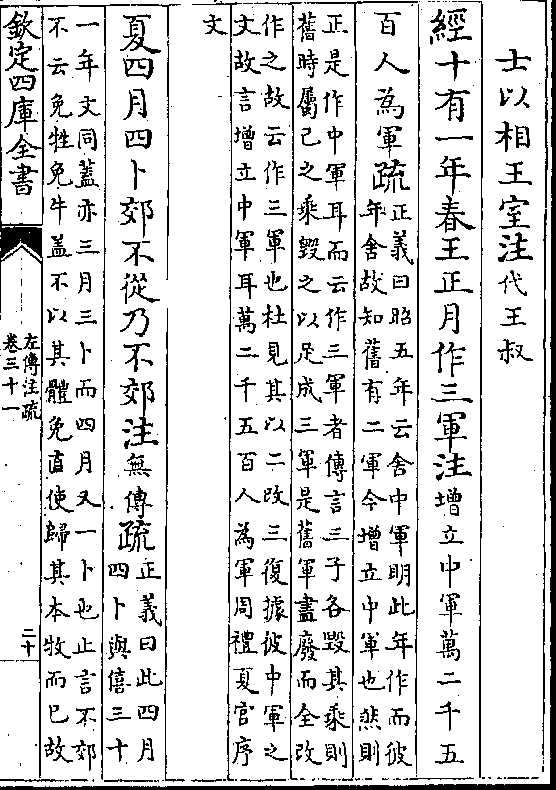 士以相王室注代王叔
經十有一年春王正月作三軍注增立中軍萬二千五
百人為軍疏正義曰昭五年云舍中軍明此年作而彼
年舍故知舊有二軍今增立中軍也然則
正是作中軍耳而云作三軍者傳言三子各毀其乘則
舊時屬己之乘毀之以足成三軍是舊軍盡廢而全改
作之故云作三軍也杜見其以二改三復據彼中軍之
文故言增立中軍耳萬二千五百人為軍周禮夏官序
文
夏四月四卜郊不從乃不郊注無傳疏正義曰此四月
四卜與僖三十
一年文同蓋亦三月三卜而四月又一卜也止言不郊
不云免牲免牛蓋不以其體免直使歸其本牧而已故
欽定四庫全書
左傳注疏
卷三十一
二十